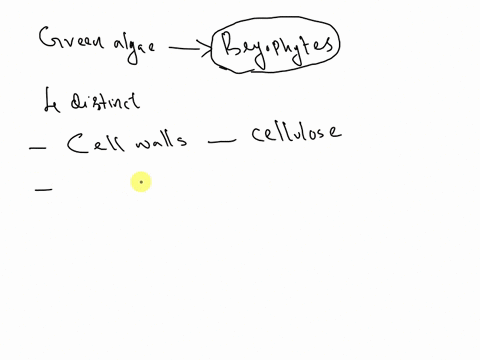 Green algae → Bryophytes
4 distinct
- Cell walls - cellulose
-